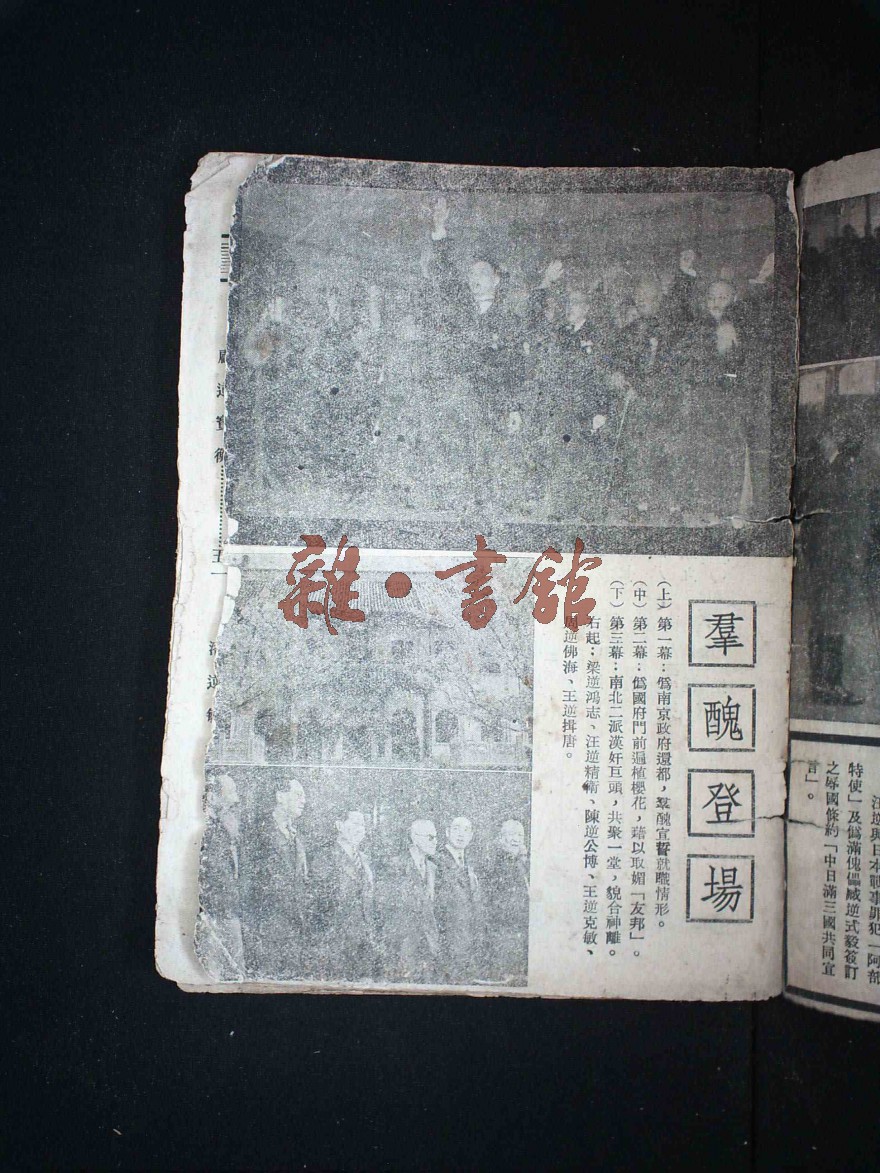 羣醜登場
（上）第一幕：僞南京政府還都，羣醜宣誓就職情形。
（中）第二幕：僞國府門前遍植櫻花，藉以取媚「友邦」。
（下）第三幕：南北二派漢奸巨頭，共聚一堂，貌合神離。
右起：梁逆鴻志、汪逆精衛、陳逆公博、王逆克敏、
周逆佛海、王逆揖唐。
汪逆與日本戰事罪犯「阿部
特使」及僞滿傀儡臧逆式毅簽訂
之辱國條約「中日滿三國共同宣
言」。
逆寶衡……………五一
逆
雜·書館